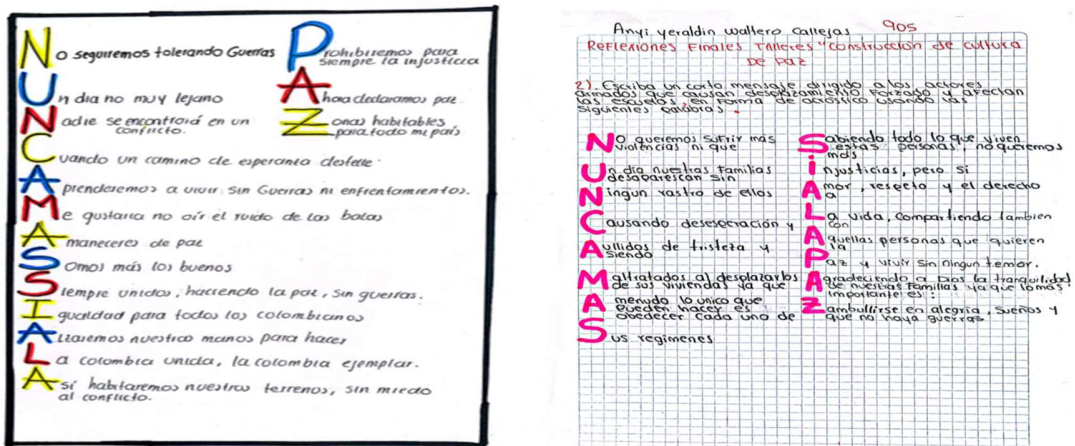 No seguiremos tolerando Guerras
Un dia no muy lejano
Nadie se encontrará en un
conflicto.
Cuando un camino de esperanza destelle.
Aprenderemos a vivir sin Guerras ni enfrentamientos.
Me gustaria no oir el ruido de las balas
Amaneceres de paz
Somos más los buenos
Siempre unidos, haciendo la paz, sin guerras.
Igualdad para todos los colombianos
Alzaremos nuestras manos para hacer
La colombia unida, la colombia ejemplar.
Así habitaremos nuestros terrenos, sin miedo
al conflicto.
Prohibiremos para
siempre la injusticia
Ahora declaramos paz.
Zonas habitables
para todo mi país
Anyi yeraldin wallero callejas 905
Reflexiones Finales Talleres "construcción de cultura
de Paz
2). Escriba un corto mensaje dirigido a los actores
armados que causan desplazamiento forzado y afectan
las escuelas, en forma de acróstico usando las
siguientes palabras.
No queremos sufrir más
violencias ni que
Un dia nuestras familias
desaparescan sin
Ningun rastro de ellos
Causando desesperación y
Aullidos de tristeza y
siendo
Maltratados al desplazarlos
de sus viviendas ya que
A menudo lo unico que
pueden hacer es
obedecer cada uno de
Sus regimenes
Sabiendo todo lo que viven
estas personas, no queremos
mas
injusticias, pero si
Amor, respeto y el derecho
a
La vida, compartiendo tambien
con
Aquellas personas que quieren
la
Paz y vivir sin ningun temor.
Agradeciendo a Dios la tranquilidad
de nuestras familias ya que lo más
importante es:
Zambullirse en alegria, sueños y
que no haya guerras